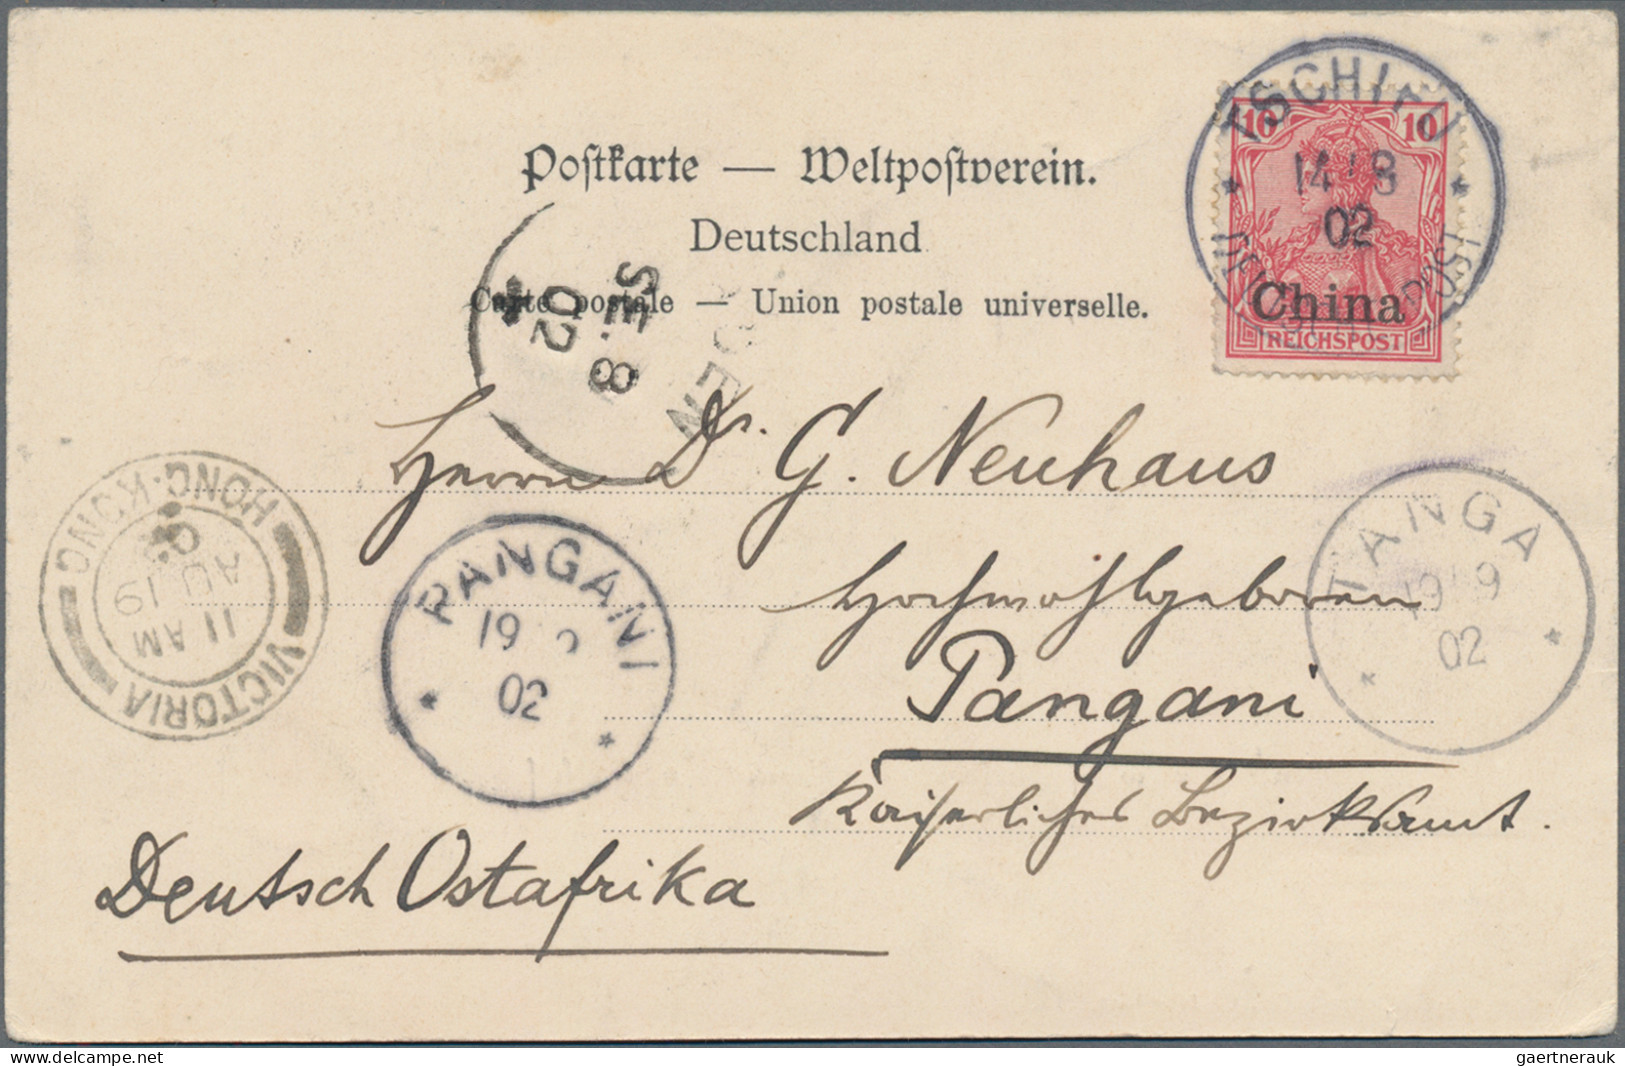 Postkarte — Weltpostverein.
Deutschland
Carte postale — Union postale universelle.
10 10
China
REICHSPOST
14 8
02
SE. 8
02
DEN
Herrn Dr. G. Neuhaus
Hochwohlgeboren
Pangani
Kaiserliches Bezirksamt.
Deutsch Ostafrika
HONG·KONG
AU 19
11 AM
VICTORIA
PANGANI
19
02
TANGA
19 9
02
gaertnerauk